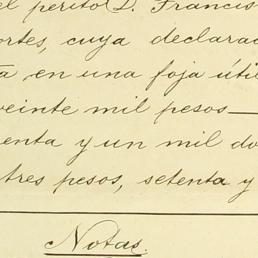 el perito D. Francis
ortes, cuya declarac
ta en una foja útil
veinte mil pesos
enta y un mil do
tres pesos, setenta y
Notas.